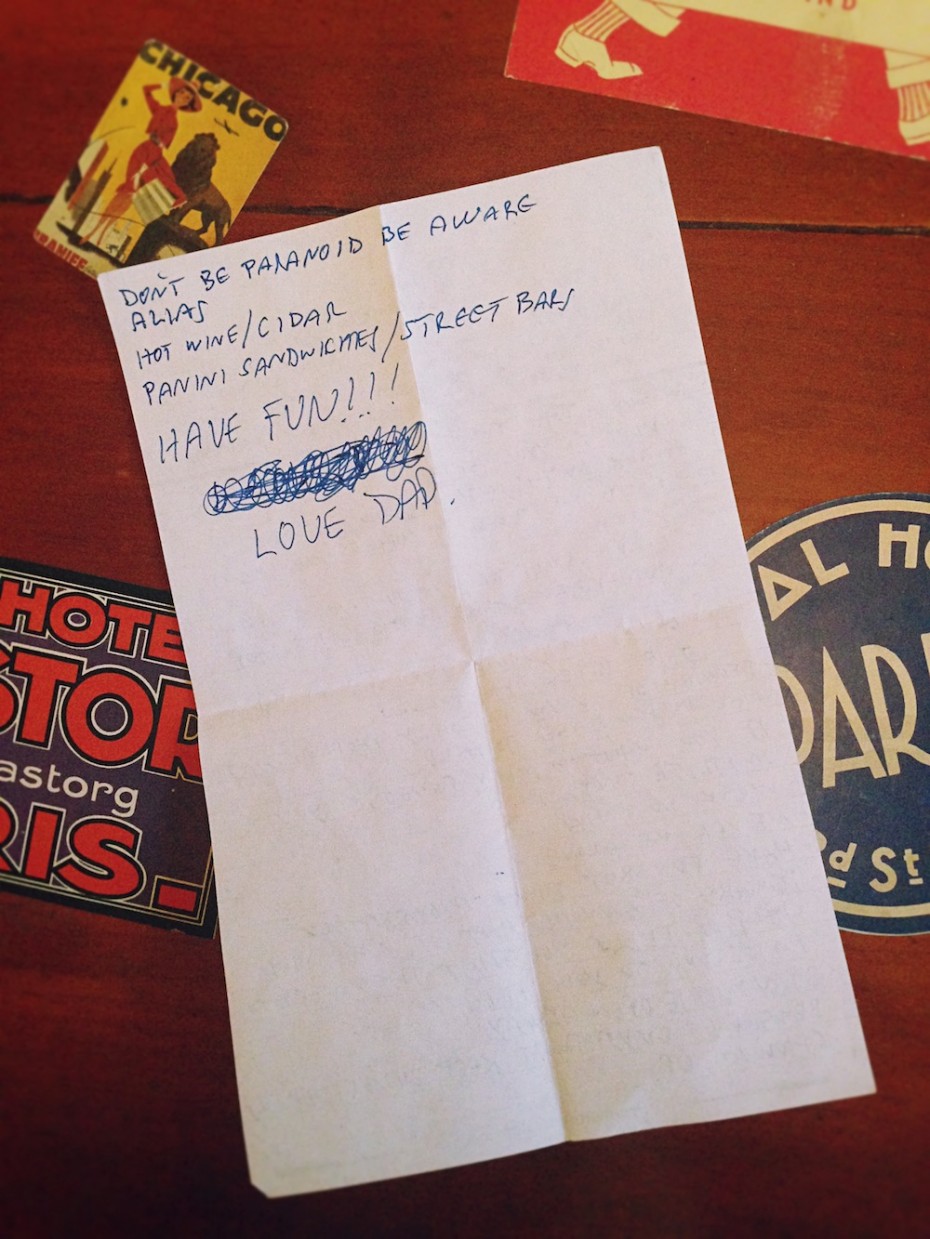 IND
CHICAGO
BRANIFF
DON'T BE PARANOID BE AWARE
ALIAS
HOT WINE/CIDAR
PANINI SANDWICHES/STREET BARS
HAVE FUN!!!
LOVE DAD.
HOTE
STOR
astorg
RIS-
AL HO
PAR
3rd St